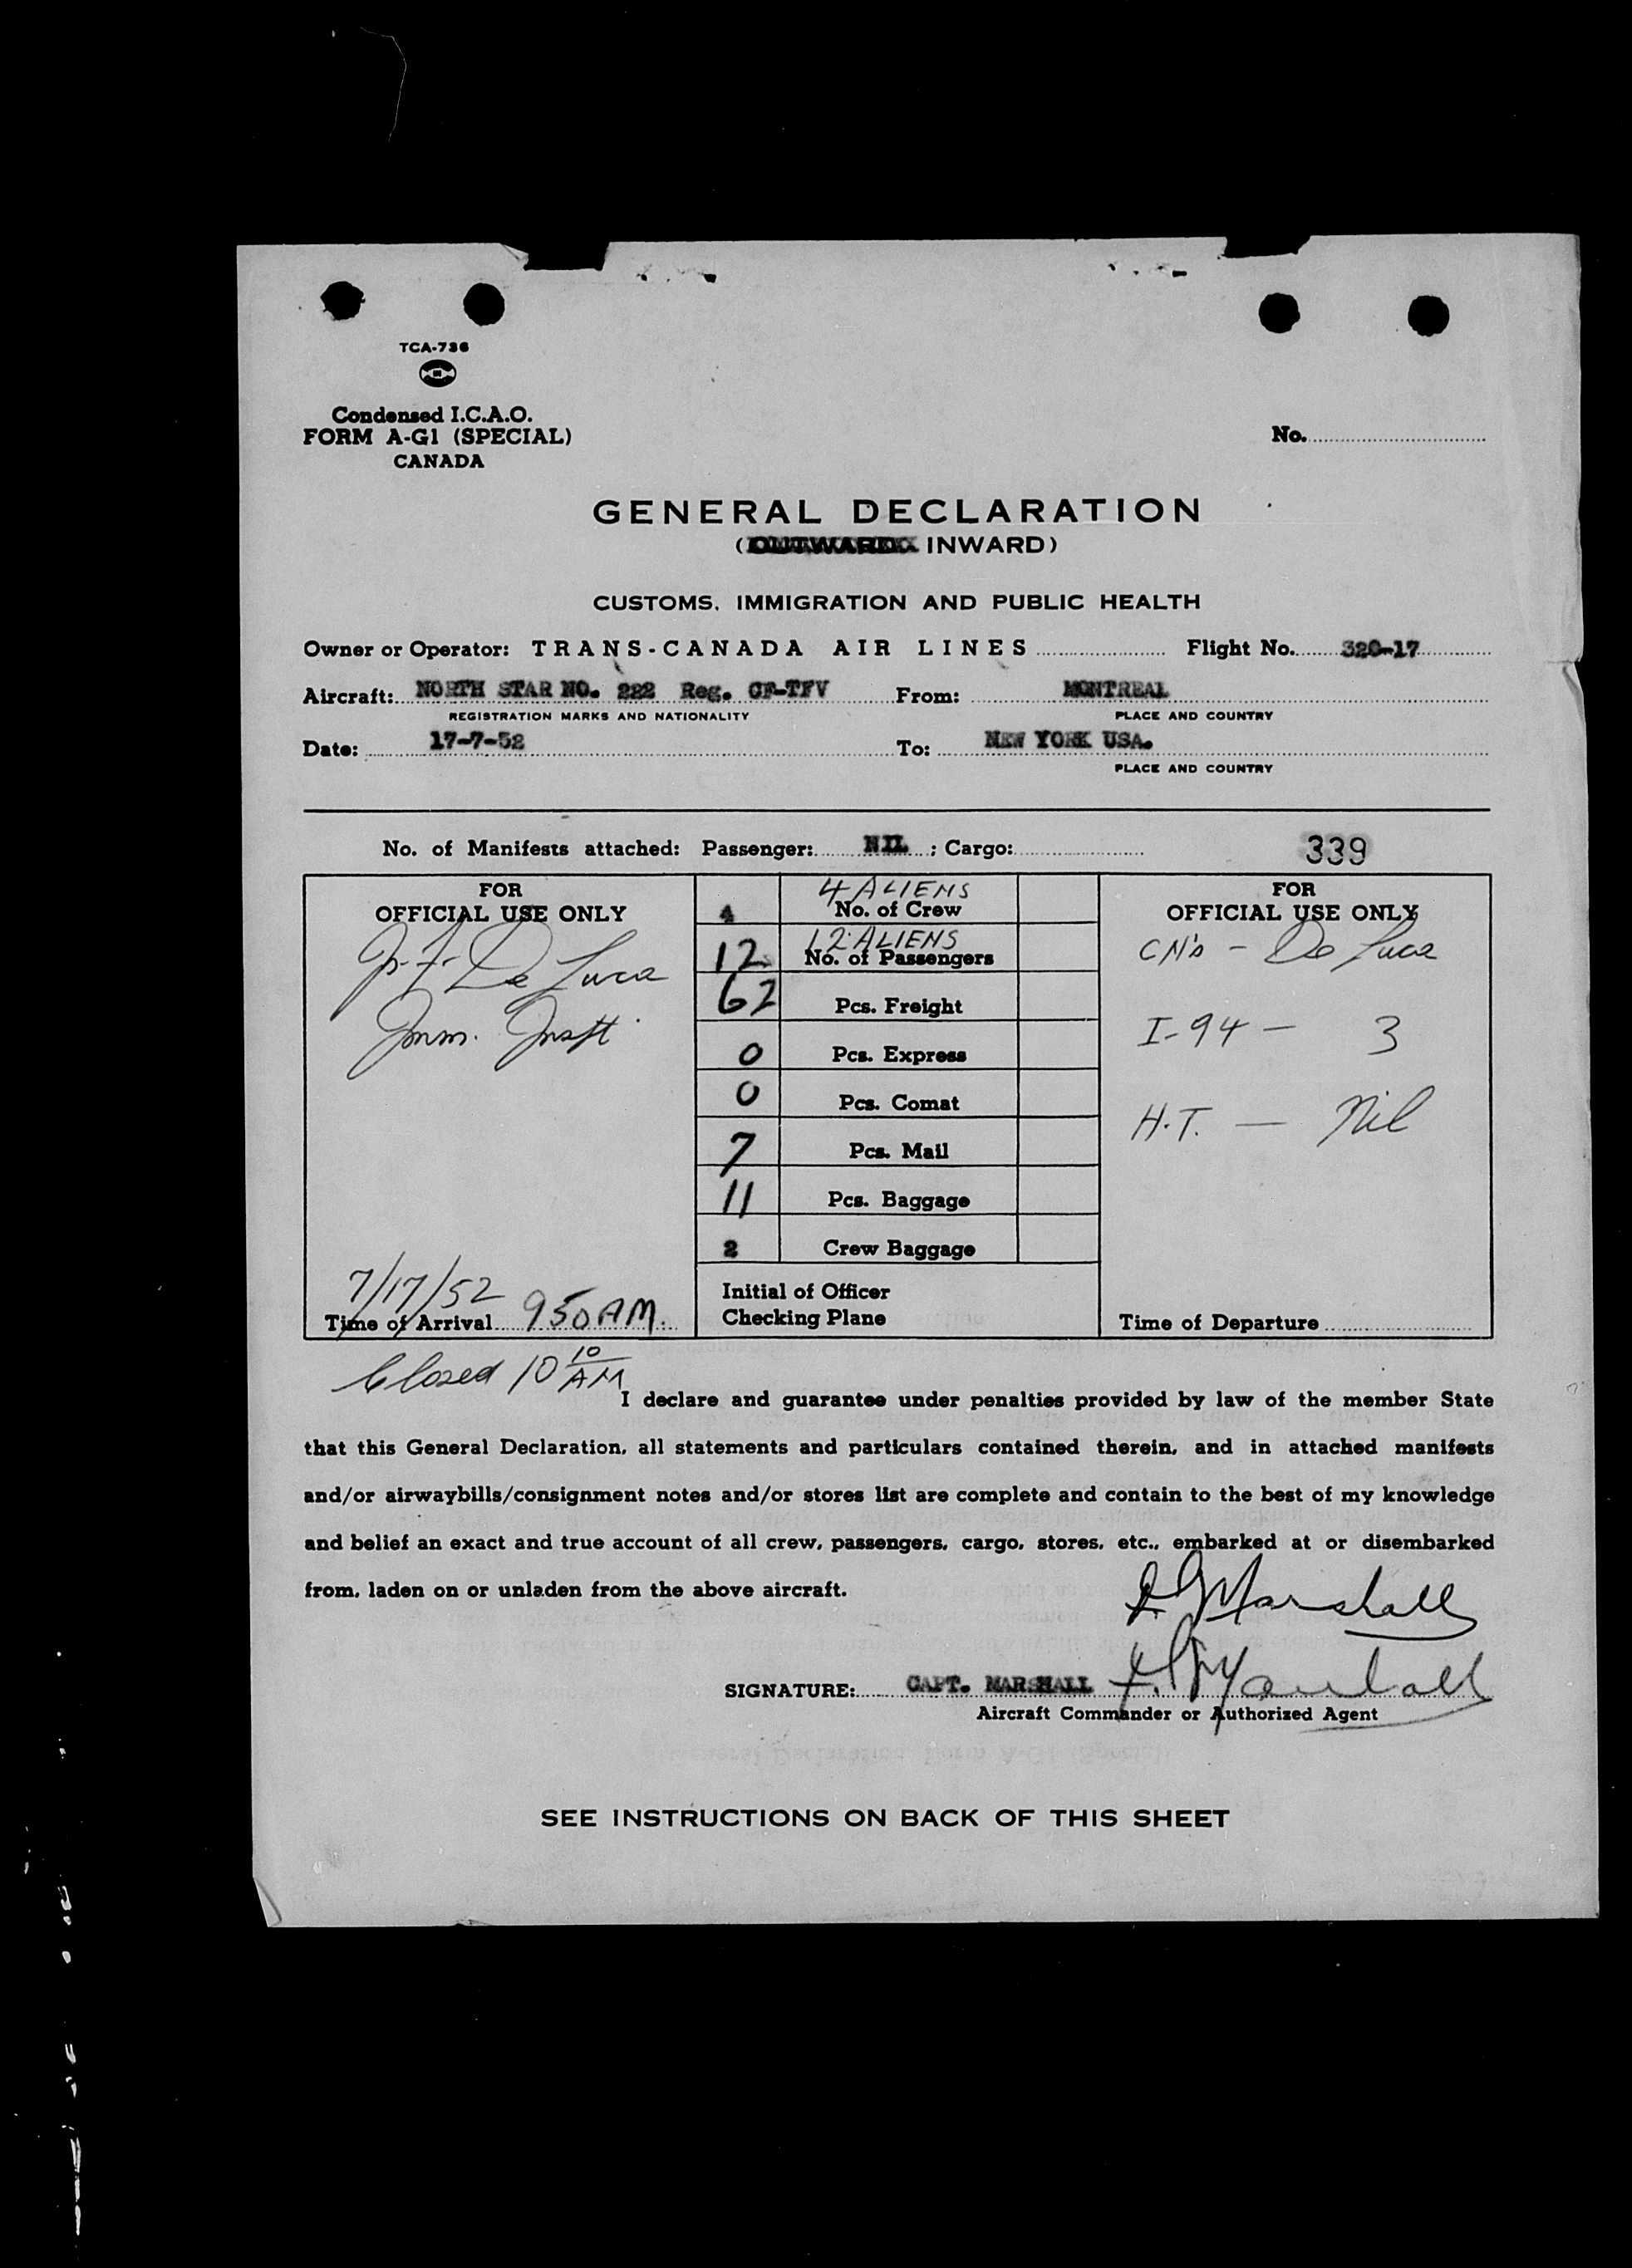 TCA-736
Condensed I.C.A.O.
FORM A-G1 (SPECIAL)
CANADA
No.
GENERAL DECLARATION
(OUTWARD INWARD)
CUSTOMS, IMMIGRATION AND PUBLIC HEALTH
Owner or Operator: TRANS-CANADA AIR LINES Flight No. 320-17
Aircraft: NORTH STAR NO. 222 Reg. CF-TFV From: MONTREAL
REGISTRATION MARKS AND NATIONALITY PLACE AND COUNTRY
Date: 17-7-52 To: NEW YORK USA.
PLACE AND COUNTRY
No. of Manifests attached: Passenger: NIL ; Cargo: 339
FOR
OFFICIAL USE ONLY
De Luca
Imm. Inspt.
7/17/52
Time of Arrival 950 AM.
4 ALIENS
4 No. of Crew
12 ALIENS
12 No. of Passengers
62 Pcs. Freight
0 Pcs. Express
0 Pcs. Comat
7 Pcs. Mail
11 Pcs. Baggage
2 Crew Baggage
Initial of Officer
Checking Plane
FOR
OFFICIAL USE ONLY
CN's - De Luca
I-94 - 3
H.T. - Nil
Time of Departure
Closed 10 10 AM
I declare and guarantee under penalties provided by law of the member State
that this General Declaration, all statements and particulars contained therein, and in attached manifests
and/or airwaybills/consignment notes and/or stores list are complete and contain to the best of my knowledge
and belief an exact and true account of all crew, passengers, cargo, stores, etc., embarked at or disembarked
from, laden on or unladen from the above aircraft.
Marshall
SIGNATURE: CAPT. MARSHALL Marshall
Aircraft Commander or Authorized Agent
SEE INSTRUCTIONS ON BACK OF THIS SHEET